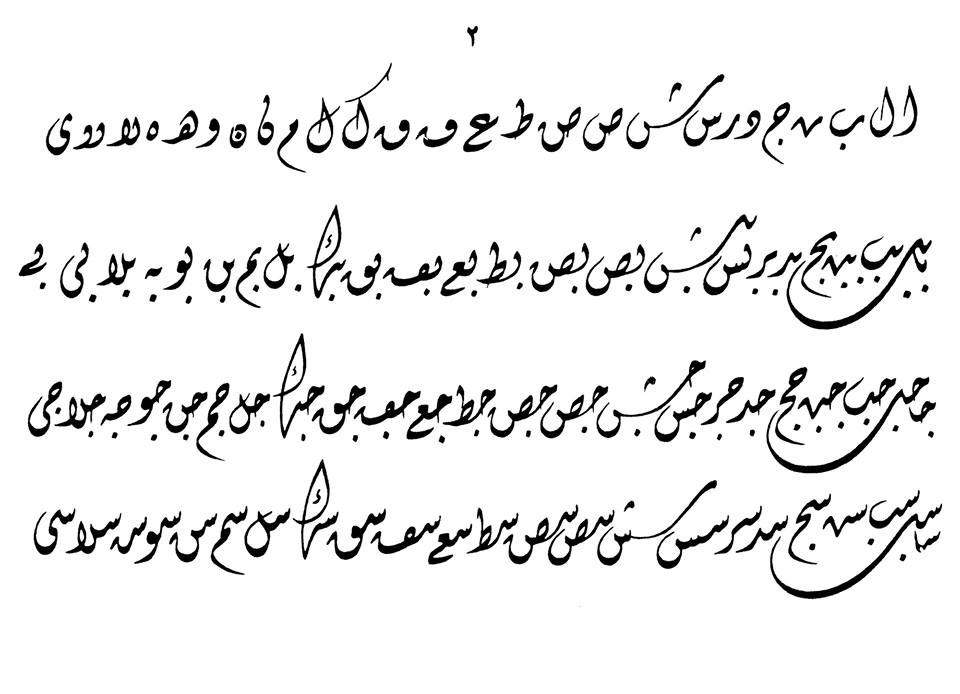 ٢
ا ل ب ج د ر س ش ص ص ط ع ف ق ك ل م ن ن و هـ ه لا لا ى
با بب بج بد بر بس بش بص بص بط بع بف بق بك بل بم بن بو به بلا بى بى
جا جب جج جد جر جس جش جص جص جط جع جف جق جك جل جم جن جو جه جلا جى
سا سب سج سد سر سس سش سص سص سط سع سف سق سك سل سم سن سو سه سلا سى